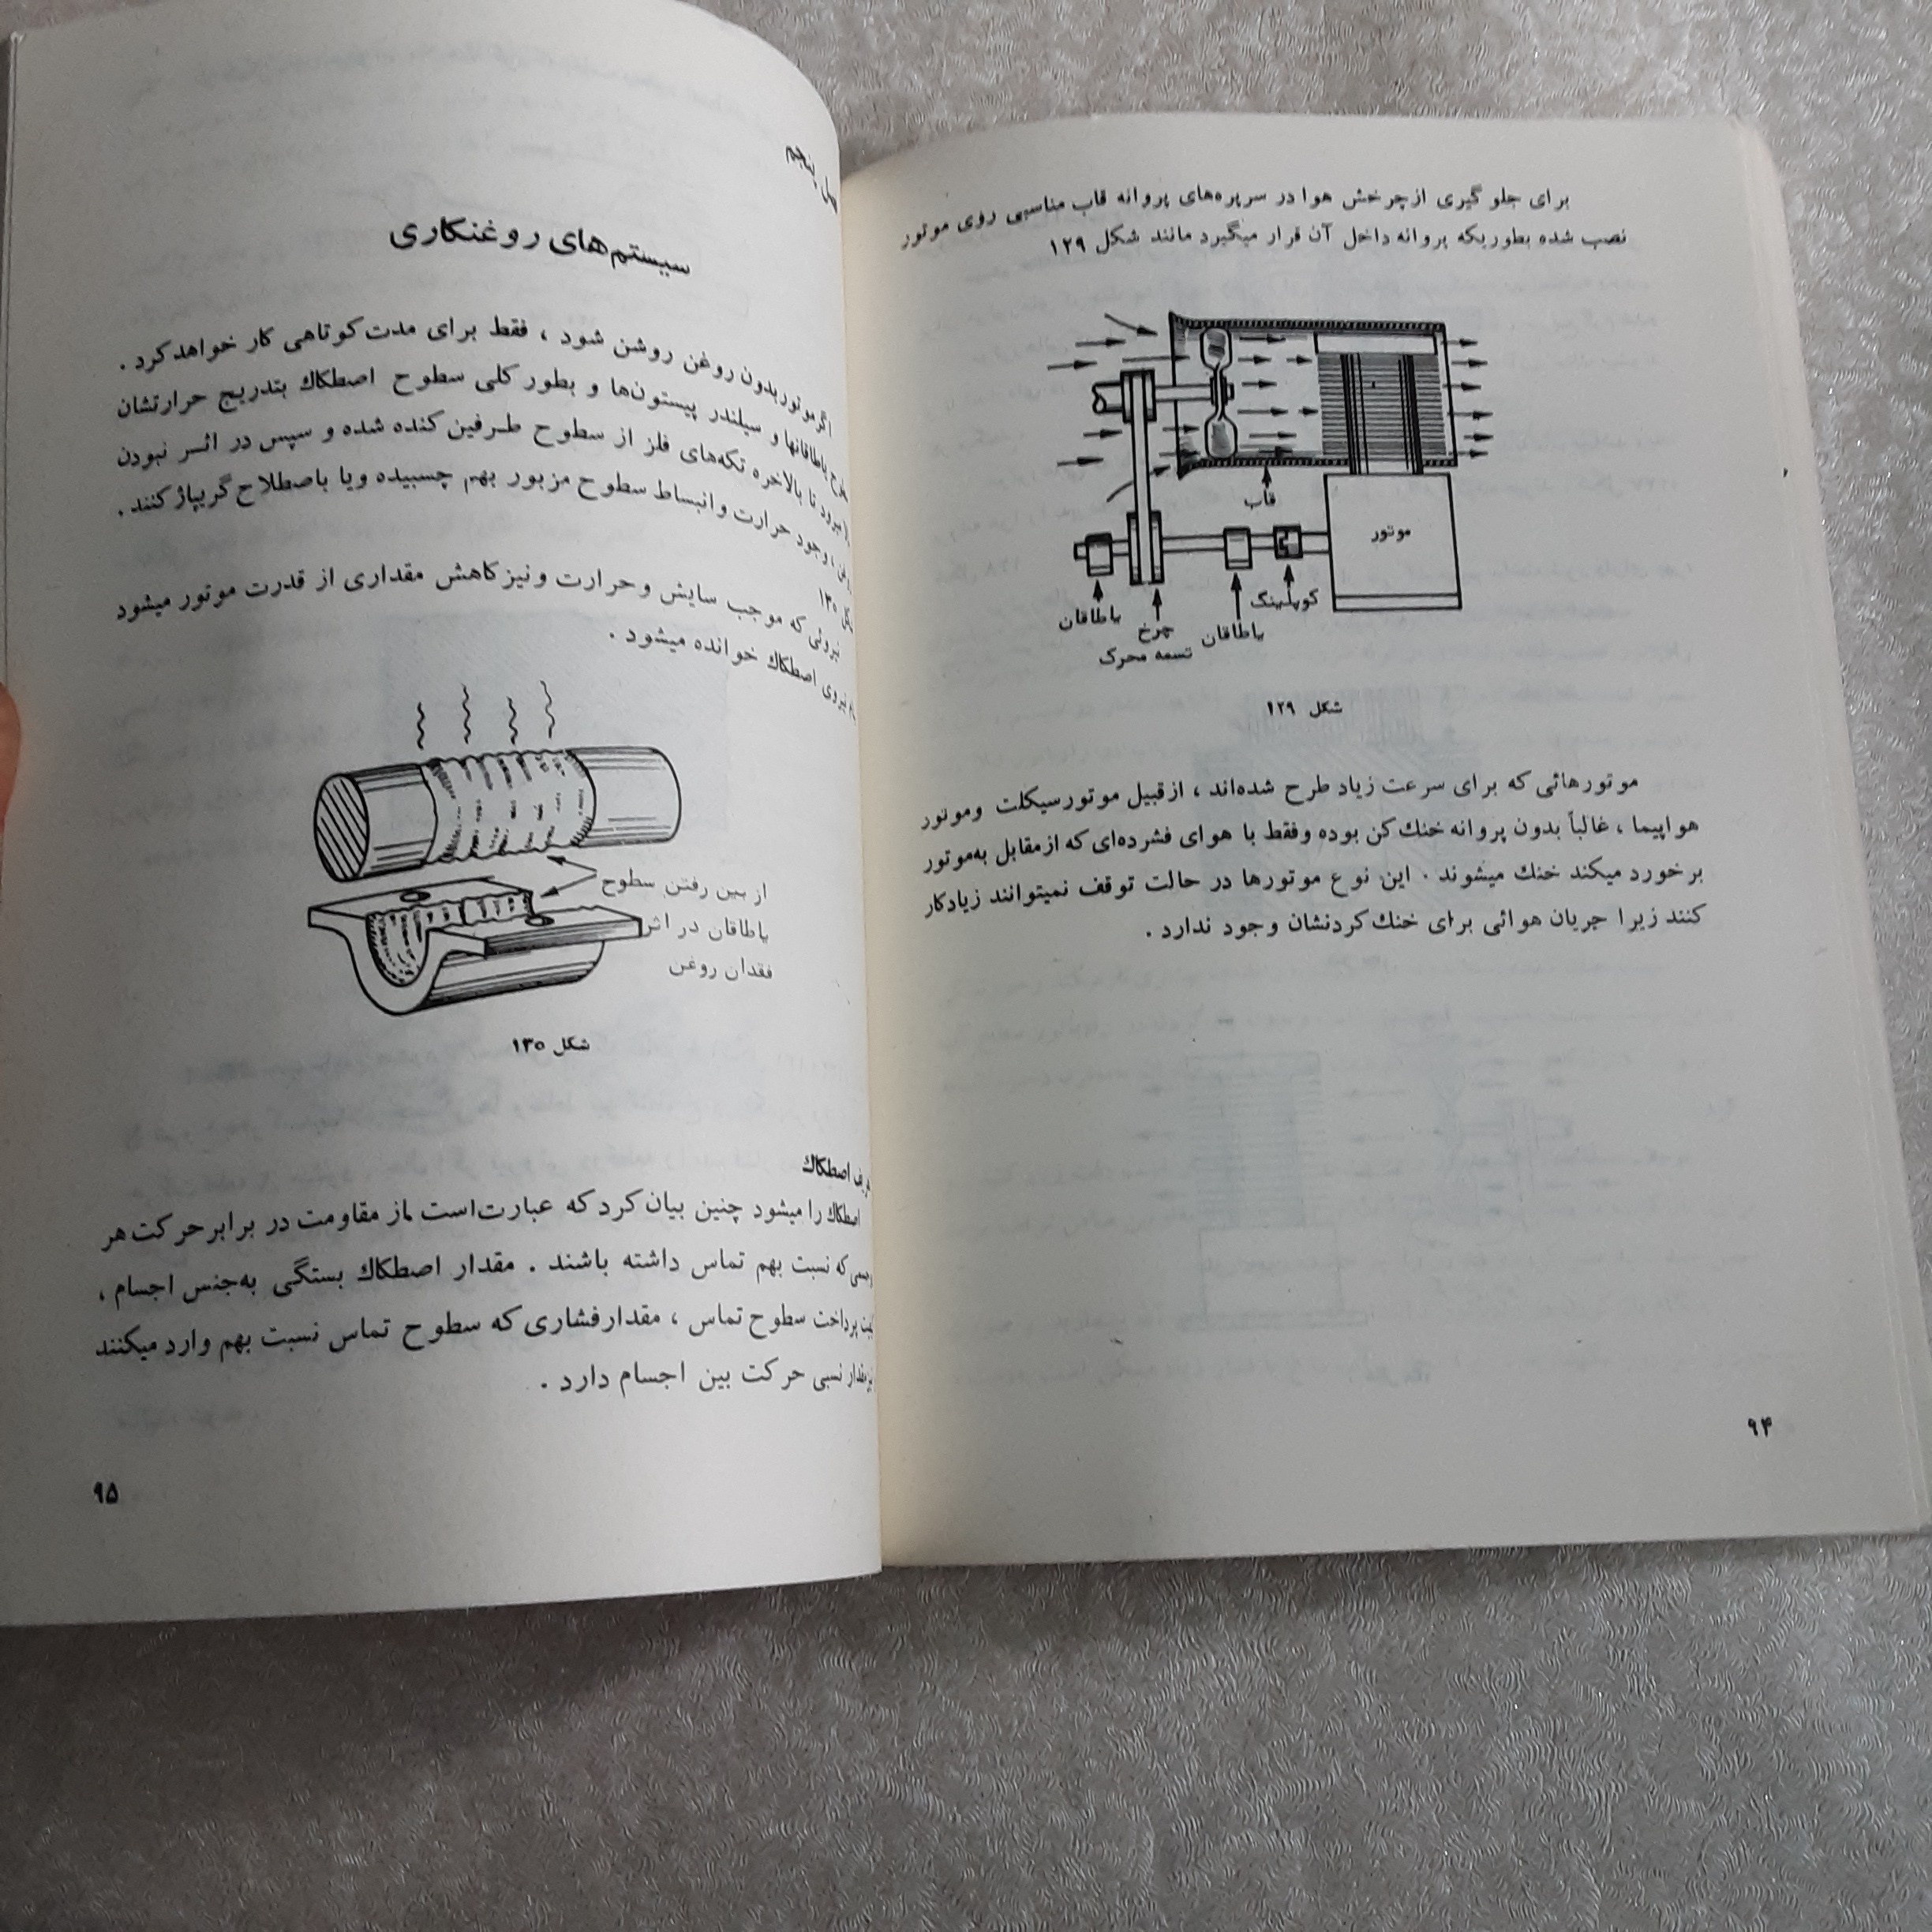 برای جلوگیری از چرخش هوا در سرپره‌های پروانه قاب مناسبی روی موتور
نصب شده بطوریکه پروانه داخل آن قرار میگیرد مانند شکل ۱۲۹
قاب
موتور
کوپلینگ
یاطاقان
چرخ
تسمه محرک
یاطاقان
شکل ۱۲۹
موتورهائی که برای سرعت زیاد طرح شده‌اند ، ازقبیل موتورسیکلت وموتور
هواپیما ، غالباً بدون پروانه خنك کن بوده وفقط با هوای فشرده‌ای که ازمقابل به‌موتور
برخورد میکند خنك میشوند . این نوع موتورها در حالت توقف نمیتوانند زیادکار
کنند زیرا جریان هوائی برای خنك کردنشان وجود ندارد .
۹۴
پنجم
سیستم‌های روغنکاری
اگرموتوربدون روغن روشن شود ، فقط برای مدت کوتاهی کار خواهدکرد .
یاطاقانها و سیلندر پیستون‌ها و بطور کلی سطوح اصطکاك بتدریج حرارتشان
میرود تا بالاخره تکه‌های فلز از سطوح طرفین کنده شده و سپس در اثر نبودن
، وجود حرارت وانبساط سطوح مزبور بهم چسبیده ویا باصطلاح گریپاژ کنند .
۱۳۰
نیروئی که موجب سایش وحرارت ونیزکاهش مقداری از قدرت موتور میشود
نیروی اصطکاك خوانده میشود .
از بین رفتن سطوح
یاطاقان در اثر
فقدان روغن
شکل ۱۳۰
اصطکاك
اصطکاك را میشود چنین بیان کرد که عبارت‌است از مقاومت در برابرحرکت هر
که نسبت بهم تماس داشته باشند . مقدار اصطکاك بستگی به‌جنس اجسام ،
پرداخت سطوح تماس ، مقدارفشاری که سطوح تماس نسبت بهم وارد میکنند
نسبی حرکت بین اجسام دارد .
۹۵